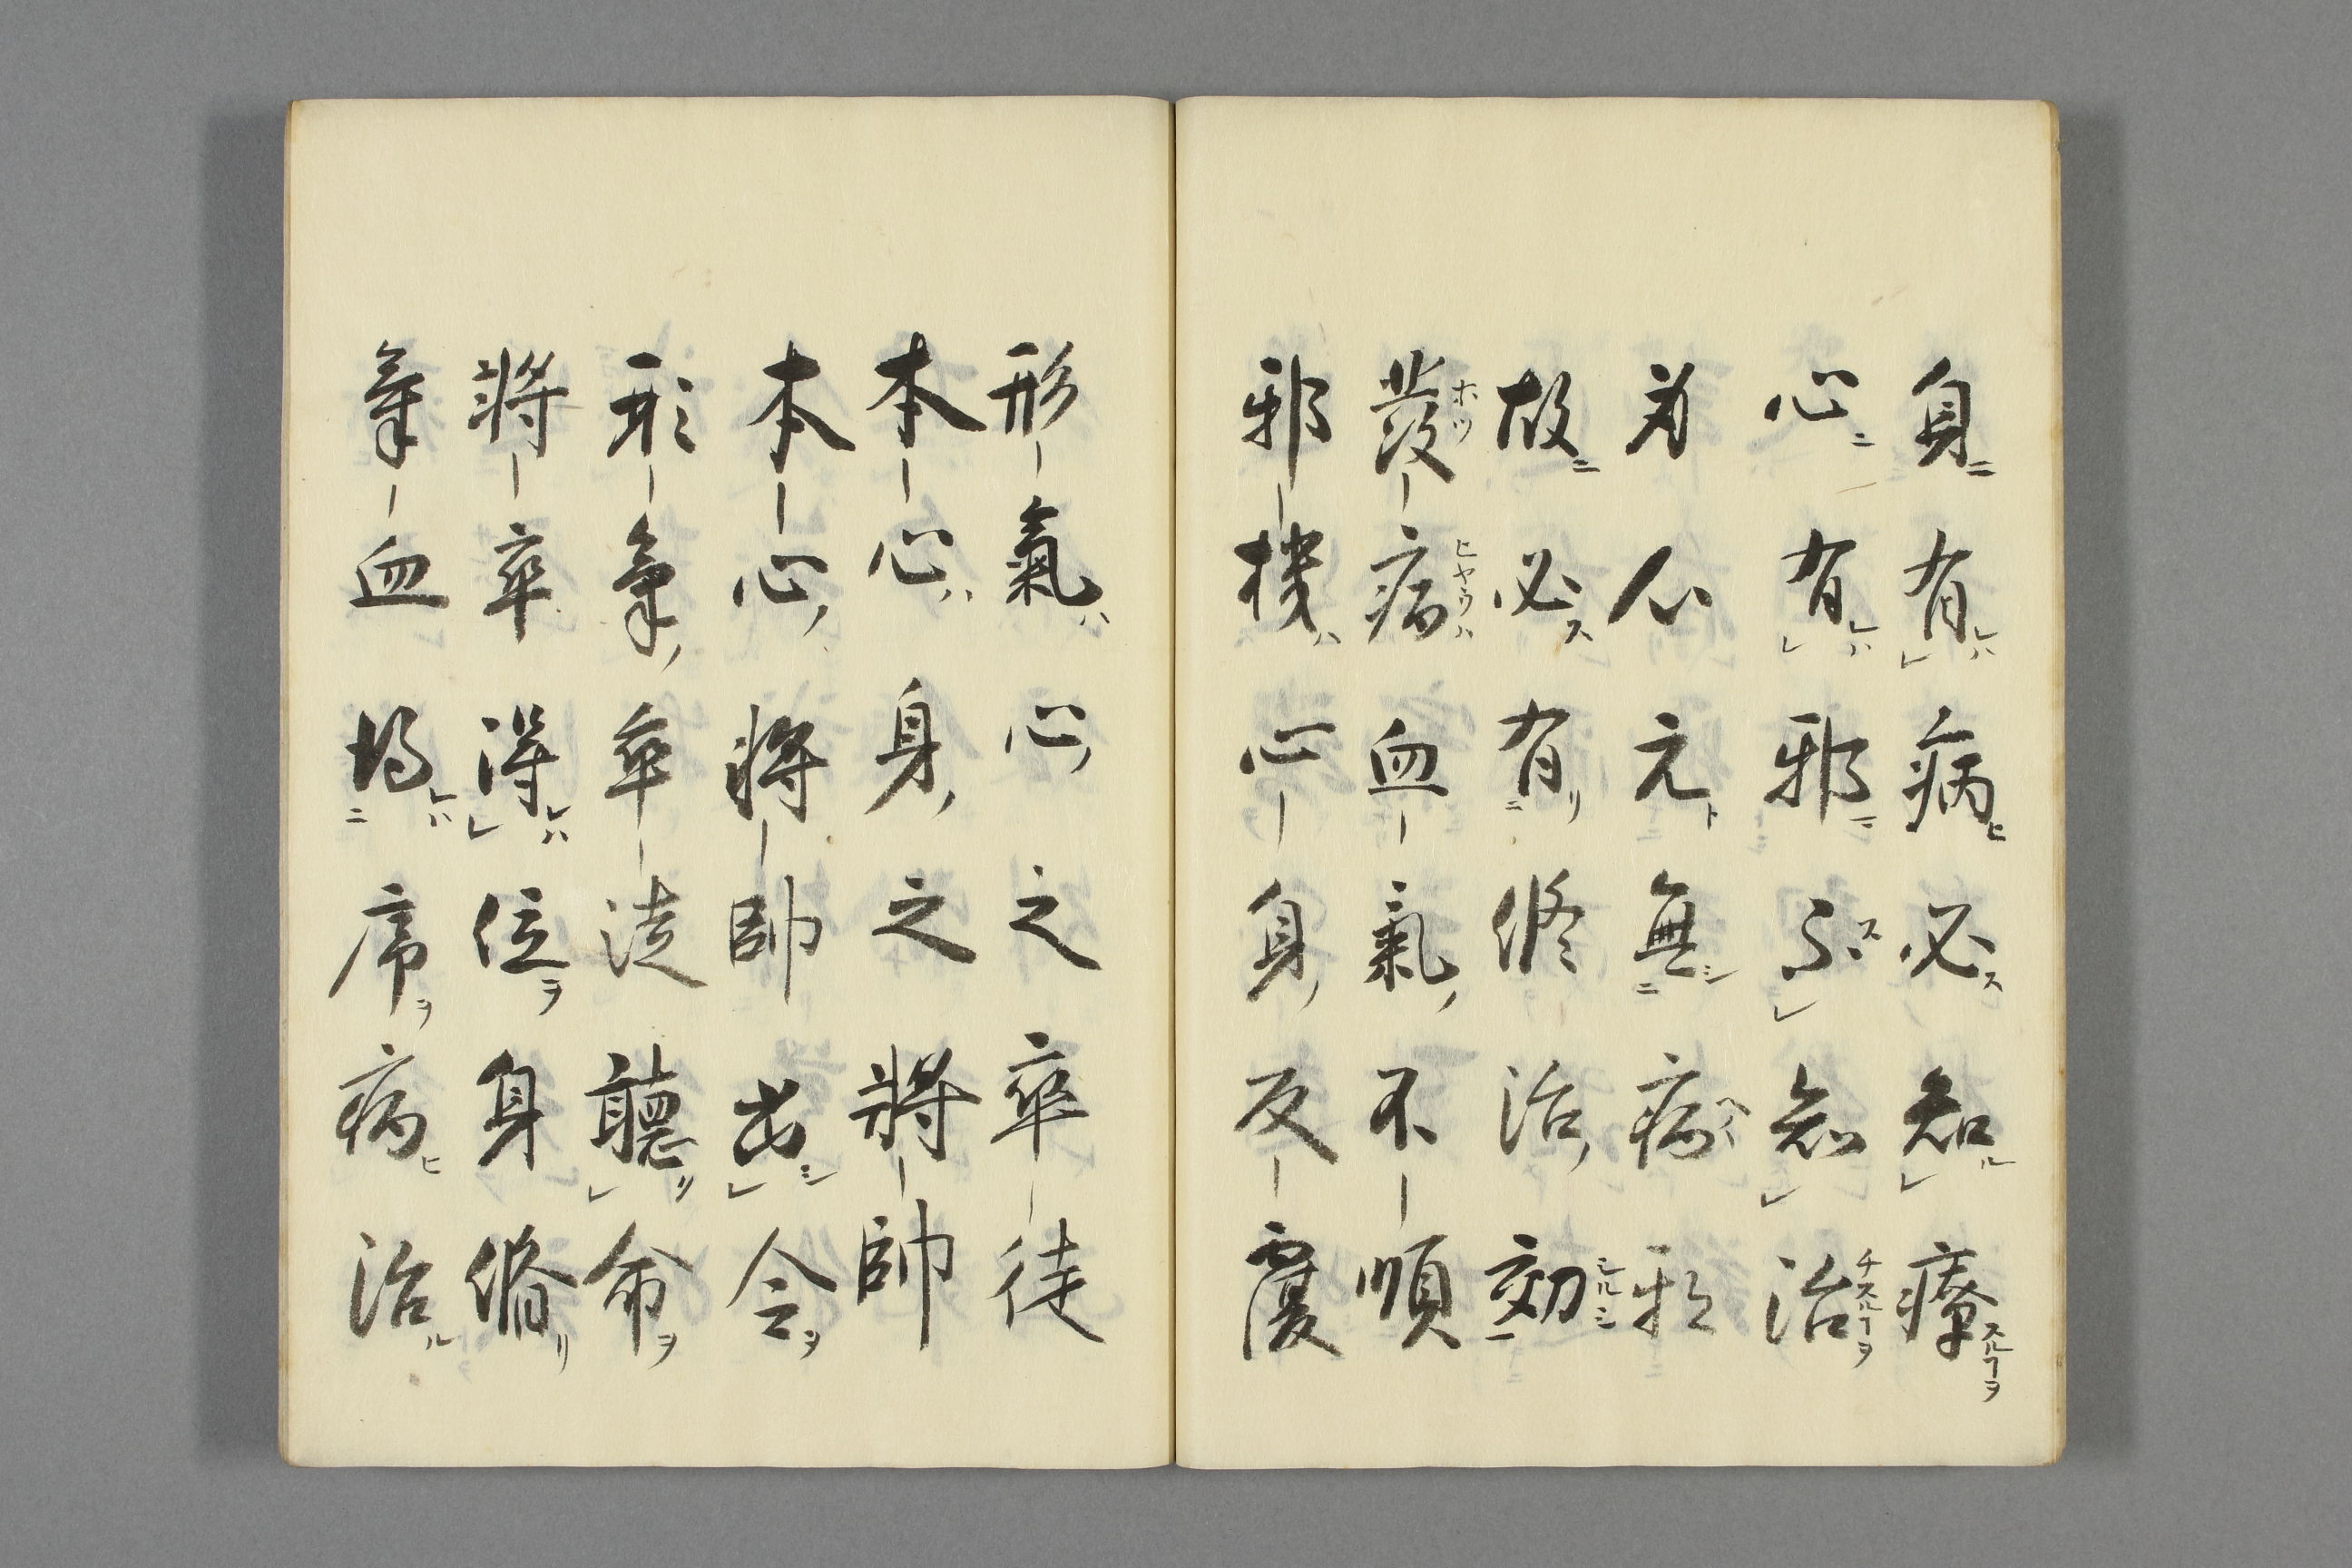 身ニ有レハ病ヒ必ス知ル療スルヿヲ
心ニ有レハ邪ニ不ス知治チスルヿヲ
元ト無シ病
故ニ必ス有リ修治ノ効シルシ
發ホツ病ヒヤウハ血氣ノ不順
邪機ハ心身ノ反覆
形氣ハ心ノ之卒徒
本心ハ身ノ之將帥
本心ノ將帥出シ令ヲ
形氣ノ卒徒聽リ命ヲ
將卒得レハ位ヲ身脩リ
氣血得レハ席ヲ病ヒ治ル